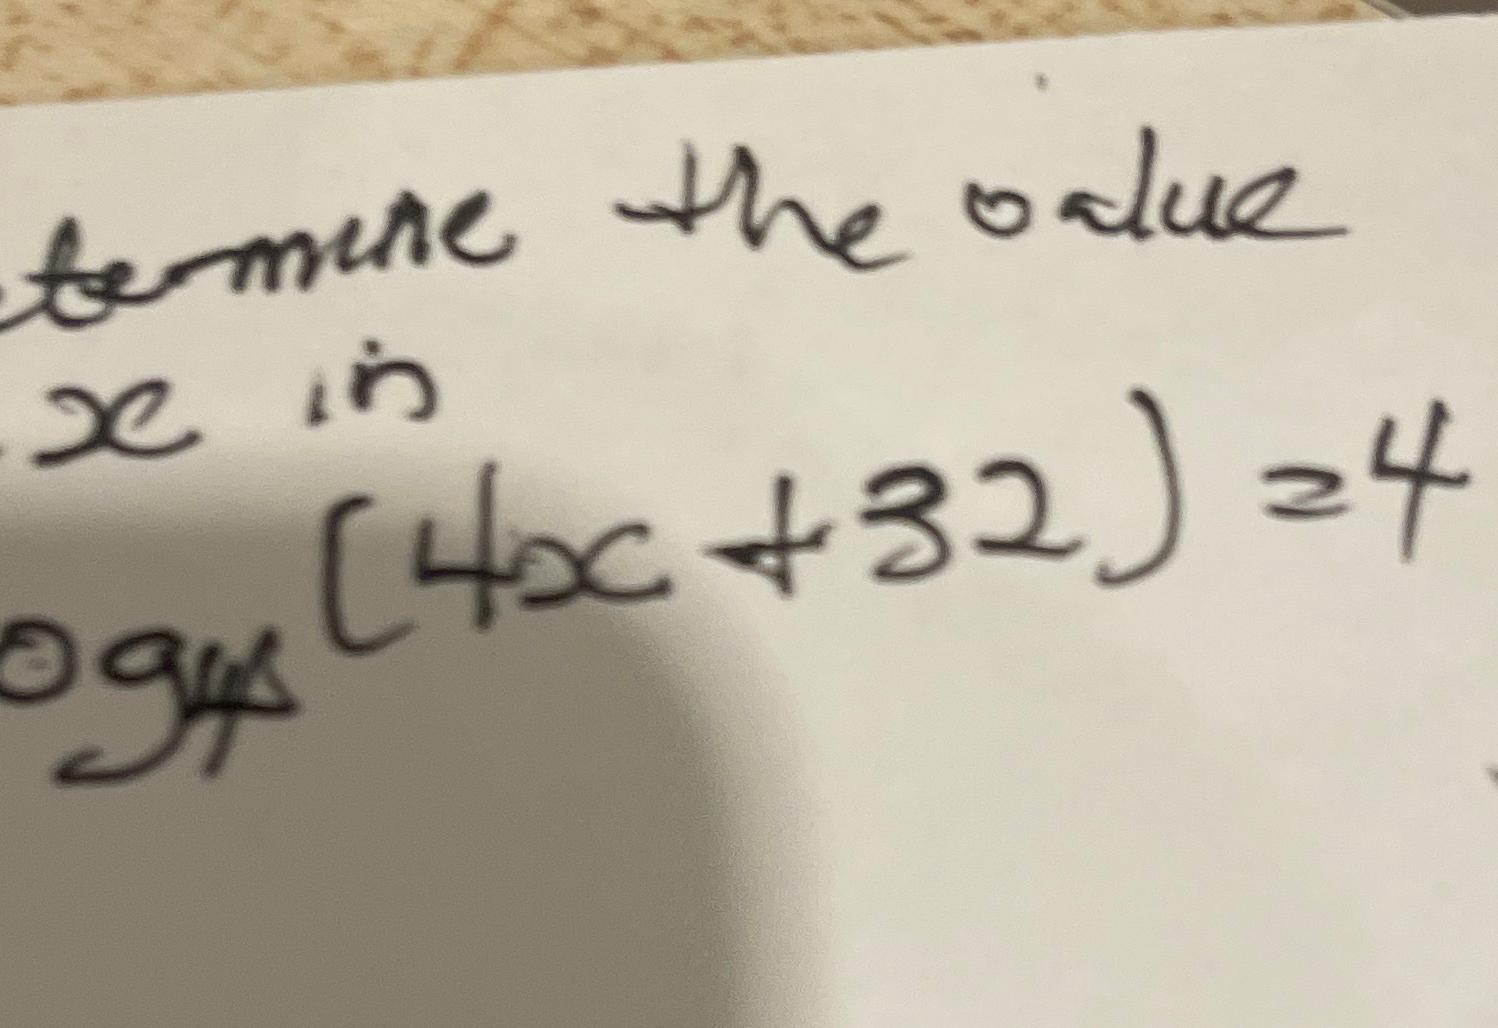 termine the value
x in
og4 (4x+32) =4